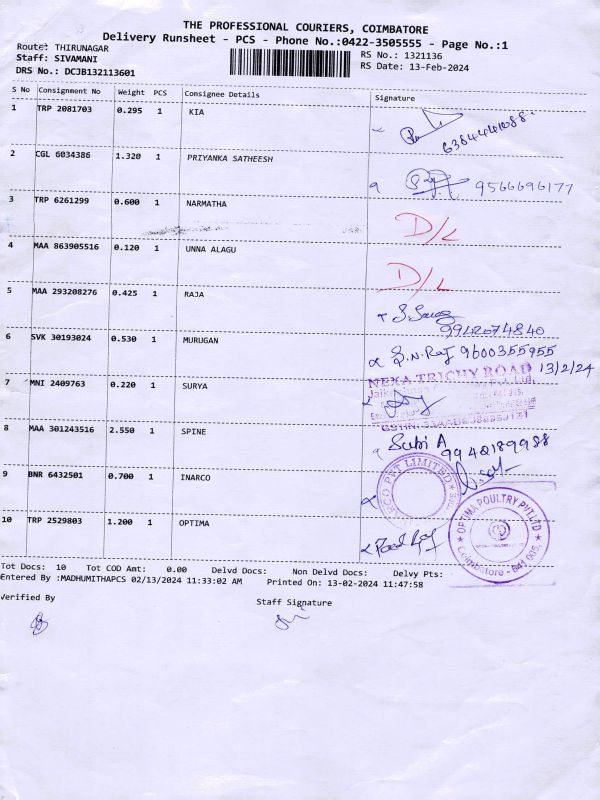 THE PROFESSIONAL COURIERS, COIMBATORE
Delivery Runsheet - PCS - Phone No.:0422-3505555 - Page No.:1
Route: THIRUNAGAR
RS No.: 1321136
Staff: SIVAMANI
RS Date: 13-Feb-2024
DRS No.: DCJB132113601
S No Consignment No Weight PCS Consignee Details Signature
1 TRP 2081703 0.295 1 KIA
6384441088
2 CGL 6034386 1.320 1 PRIYANKA SATHEESH
9566696177
3 TRP 6261299 0.600 1 NARMATHA D/L
4 MAA 863905516 0.120 1 UNNA ALAGU D/L
5 MAA 293208276 0.425 1 RAJA
9942074840
6 SVK 30193024 0.530 1 MURUGAN S.N.Raj 9600355955
13/2/24
NEXA TRICHY ROAD
7 MNI 2409763 0.220 1 SURYA
8 MAA 301243516 2.550 1 SPINE Subi A
9942189988
9 BNR 6432501 0.700 1 INARCO
PVT LIMITED
10 TRP 2529803 1.200 1 OPTIMA
OPTIMA POULTRY PVT LTD
Coimbatore - 641 005.
Tot Docs: 10 Tot COD Amt: 0.00 Delvd Docs: Non Delvd Docs: Delvy Pts:
Entered By :MADHUMITHAPCS 02/13/2024 11:33:02 AM Printed On: 13-02-2024 11:47:58
Verified By
Staff Signature